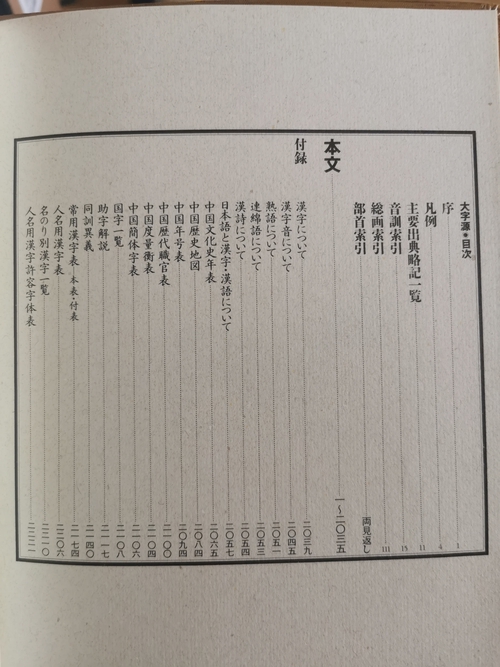 大字源●目次
序 1
凡例 4
主要出典略記一覧 11
音訓索引 15
総画索引 111
部首索引 両見返し
本文 一〜二〇三五
付録
漢字について 二〇三九
漢字音について 二〇四五
熟語について 二〇五一
連綿語について 二〇五三
漢詩について 二〇五四
日本語と漢字・漢語について 二〇五七
中国文化史年表 二〇六五
中国歴史地図 二〇八四
中国年号表 二〇九四
中国歴代職官表 二一〇〇
中国度量衡表 二一〇四
中国簡体字表 二一〇六
国字一覧 二一〇八
助字解説 二一一七
同訓異義 二一四〇
常用漢字表 本表・付表 二一七四
人名用漢字表 二二〇六
名のり別漢字一覧 二二一〇
人名用漢字許容字体表 二二二一